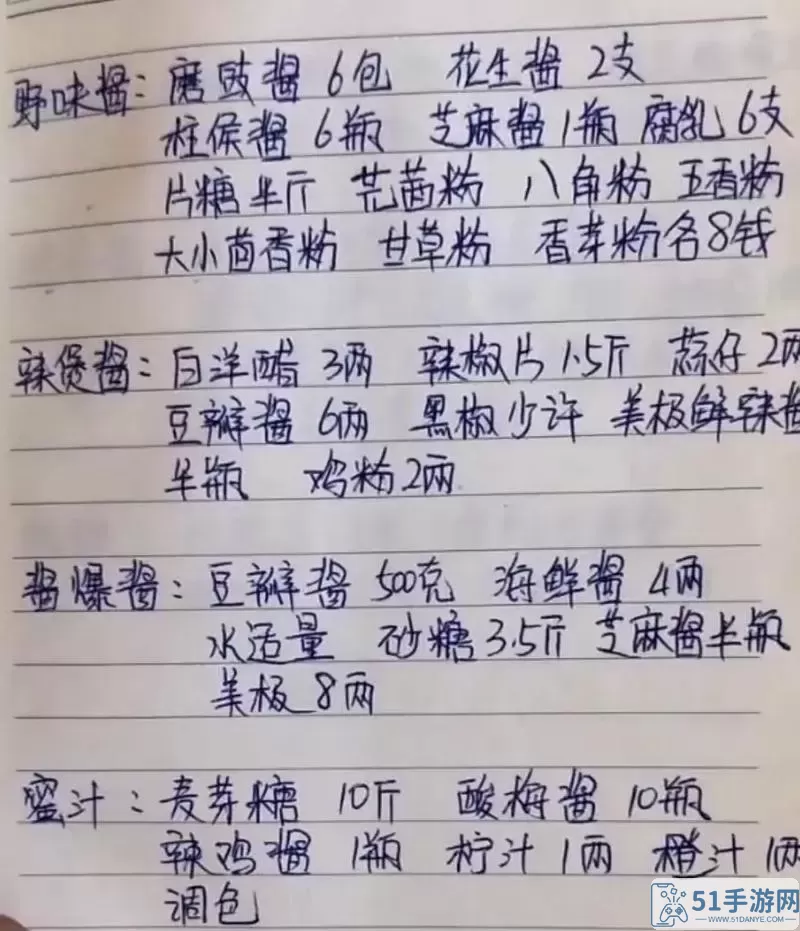 野味酱：磨豉酱 6包 花生酱 2支
柱侯酱 6瓶 芝麻酱1瓶 腐乳 6支
片糖半斤 芫茜粉 八角粉 五香粉
大小茴香粉 甘草粉 香芽粉各8钱
辣煲酱：白洋醋 3两 辣椒片 1.5斤 蒜仔 2两
豆瓣酱 6两 黑椒少许 美极鲜辣酱
半瓶 鸡粉2两
酱爆酱：豆瓣酱 500克 海鲜酱 4两
水适量 砂糖3.5斤 芝麻酱半瓶
美极 8两
蜜汁：麦芽糖 10斤 酸梅酱 10瓶
辣鸡酱 1瓶 柠汁 1两 橙汁 1两
调色
51手游网
WWW.51DANYE.COM